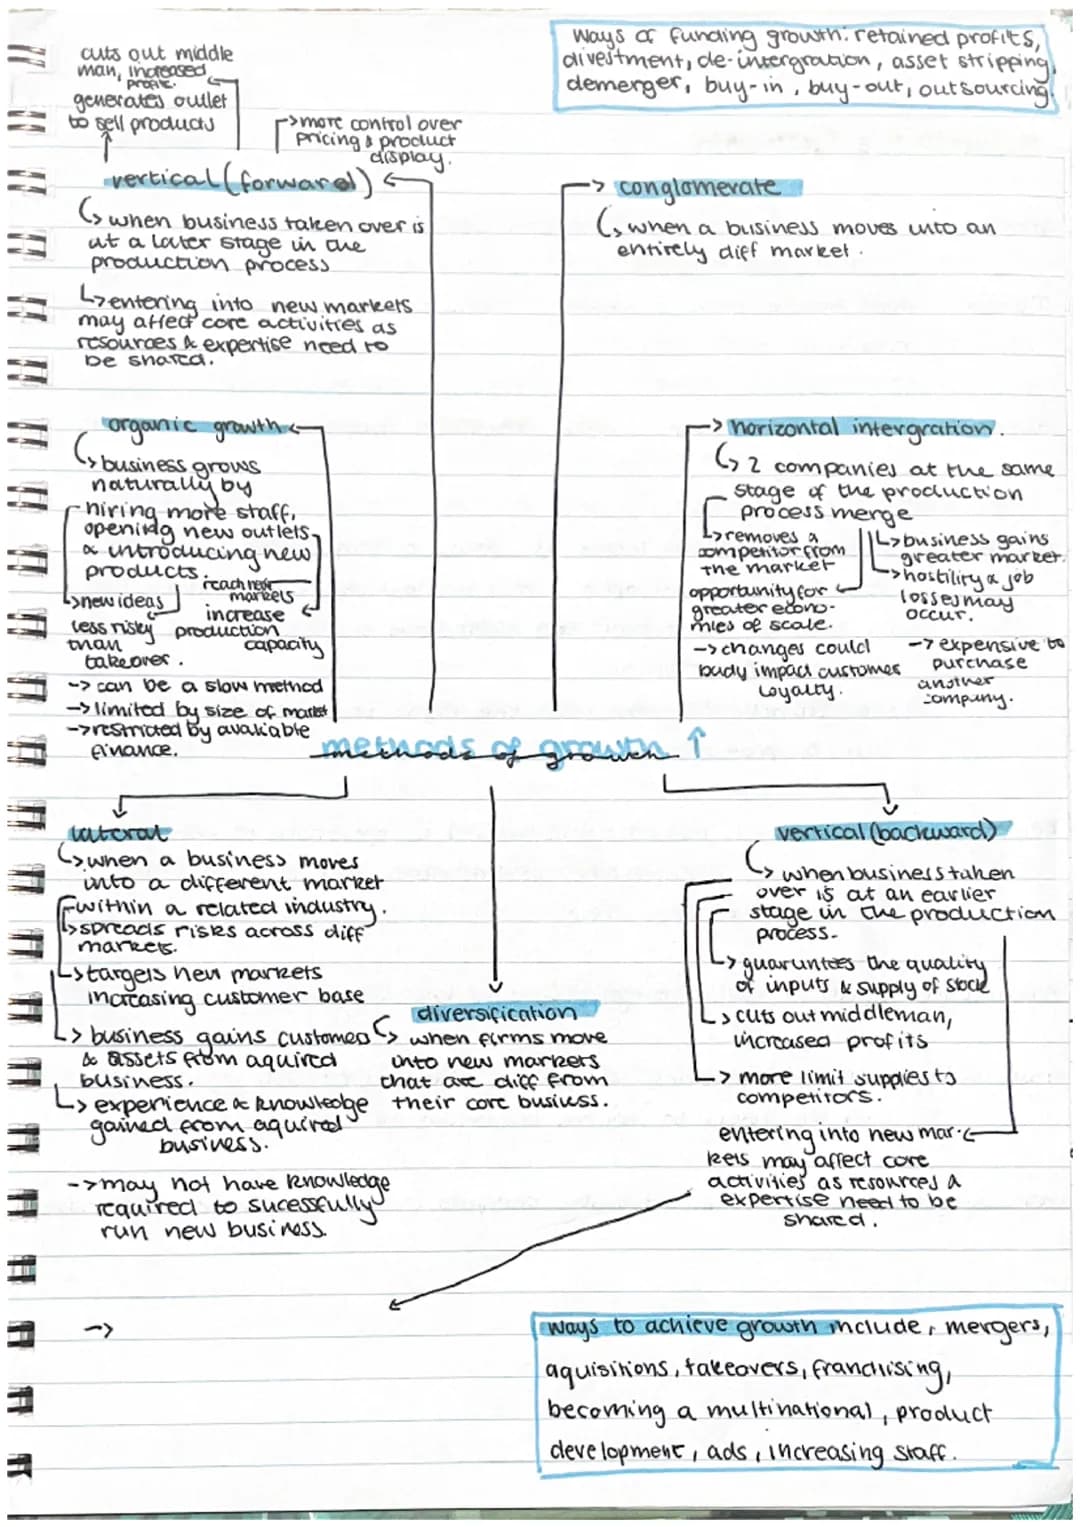 ways of funding growth: retained profits,
divestment, de-intergration, asset stripping,
demerger, buy-in, buy-out, outsourcing.
cuts out middle
man, increased
profit.
generates outlet
to sell products
->more control over
pricing & product
display.
vertical (forward)
when business taken over is
at a later stage in the
production process
entering into new markets
may affect core activities as
resources & expertise need to
be shared.
-> conglomerate
when a business moves into an
entirely diff market.
organic growth
business grows
naturally by
hiring more staff,
opening new outlets,
& introducing new
products.
new ideas
reach new
markets
increase
production
capacity
less risky
than
takeover.
-> can be a slow method
-> limited by size of market
-> restricted by avaliable
finance.
-> horizontal intergration.
2 companies at the same
stage of the production
process merge
removes a
competitor from
the market
business gains
greater market.
hostility & job
losses may
occur.
opportunity for
greater econo-
mies of scale.
-> changes could
bady impact customer
loyalty.
-> expensive to
purchase
another
company.
methods of growth ↑
lateral
when a business moves
into a different market
within a related industry.
spreads risks across diff
markets.
targets new markets
increasing customer base
business gains customers
& assets from aquired
business.
experience & knowledge
gained from aquired
business.
-> may not have knowledge
required to sucessfully
run new business.
->
diversification
when firms move
into new markets
that are diff from
their core busicss.
vertical (backward)
when business taken
over is at an earlier
stage in the production
process.
guaruntees the quality
of inputs & supply of stock
cuts out middleman,
increased profits
more limit supplies to
competitors.
entering into new mar-
kets may affect core
activities as resources &
expertise need to be
shared.
ways to achieve growth include, mergers,
aquisitions, takeovers, franchising,
becoming a multinational, product
development, ads, increasing staff.